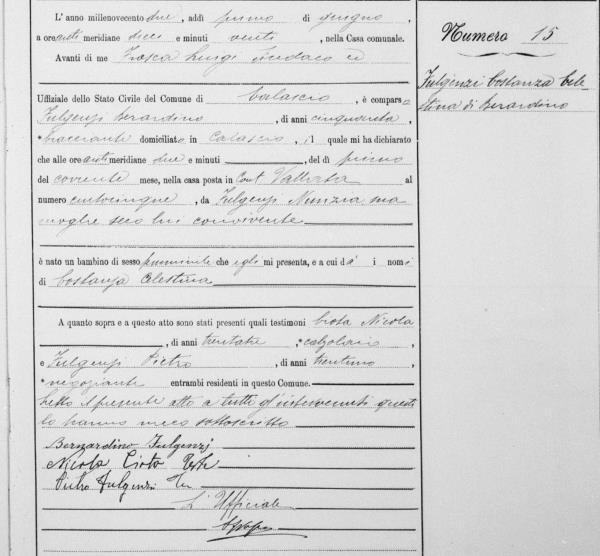 L'anno millenovecento due, addì primo di giugno,
a ore anti meridiane dieci e minuti venti, nella Casa comunale.
Avanti di me Frasca Luigi Sindaco ed
Uffiziale dello Stato Civile del Comune di Calascio, è comparso
Fulgenzj Berardino, di anni cinquanta,
bracciante domiciliato in Calascio, il quale mi ha dichiarato
che alle ore anti meridiane due e minuti, del dì primo
del corrente mese, nella casa posta in Cont Vallata al
numero centocinque, da Fulgenzj Nunzia sua
moglie seco lui convivente
è nato un bambino di sesso femminile che egli mi presenta, e a cui dà i nomi
di Costanza Celestina
A quanto sopra e a questo atto sono stati presenti quali testimoni Ciota Nicola
, di anni trentatre, calzolaio
e Fulgenzj Pietro, di anni trentuno,
negoziante entrambi residenti in questo Comune.
Letto il presente atto a tutti gl'intervenuti questi
lo hanno meco sottoscritto
Bernardino Fulgenzj
Nicola Ciota Teste
Pietro Fulgenzi Te
L'Uffiziale
Numero 15
Fulgenzi Costanza Cele
stina di Berardino